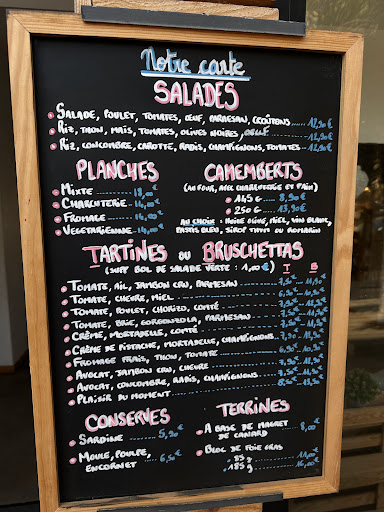 Notre carte
SALADES
Salade, poulet, tomates, œuf, parmesan, croûtons 12,90€
Riz, thon, maïs, tomates, olives noires, œuf 12,90€
Riz, concombre, carotte, radis, champignons, tomates 12,90€
PLANCHES
Mixte 18,00€
Charcuterie 14,00€
Fromage 14,00€
Vegetarienne 14,00€
CAMEMBERTS
(au four, avec charcuterie et pain)
145 G 8,90€
250 G 13,90€
au choix: noire olive, miel, vin blanc,
pastis bleu, sirop thym ou romarin
TARTINES ou BRUSCHETTAS
(supp bol de salade verte : 1,00€) T B
Tomate, ail, jambon cru, parmesan 7,90€ 11,90€
Tomate, chevre, miel
Tomate, poulet, chorizo, comté
Tomate, brie, gorgonzola, parmesan
Crème, mortadelle, comté
Crème de pistache, mortadelle, champignons
Fromage frais, thon, tomate
Avocat, jambon cru, chevre
Avocat, concombre, radis, champignons
Plaisir du moment
CONSERVES
Sardine 5,90€
Moule, poulpe,
encornet 6,50€
TERRINES
A base de magret
de canard 8,00€
Bloc de foie gras
85 g 11,00€
185 g 16,00€